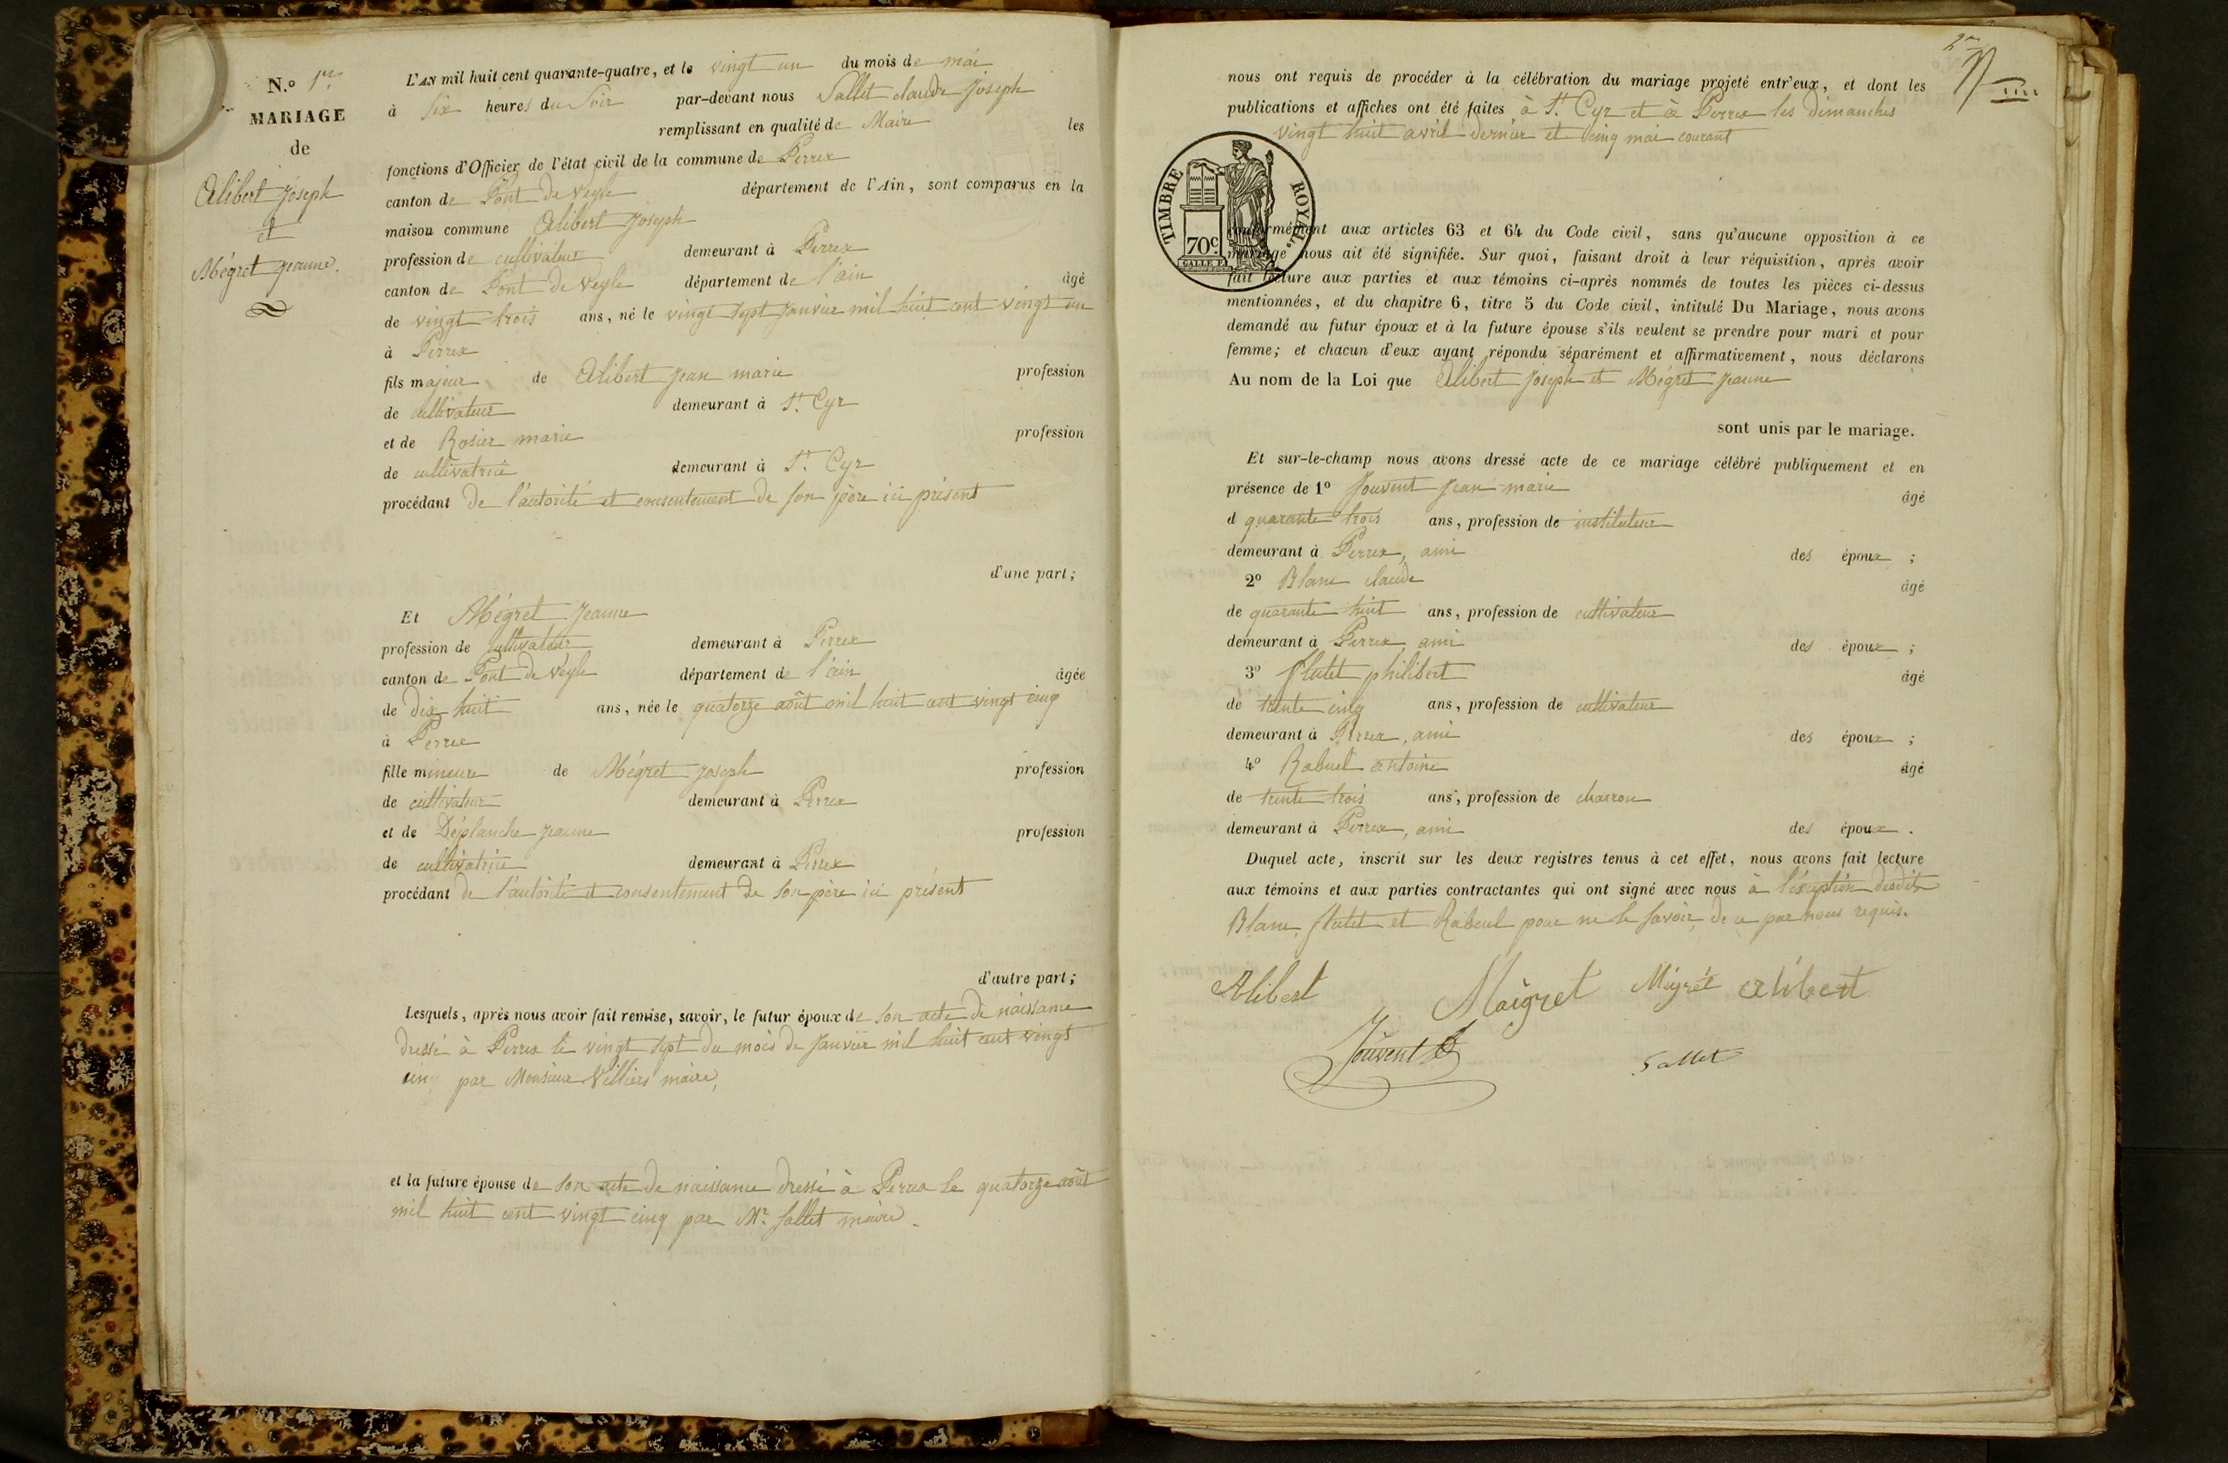 N.o 1er
MARIAGE
de
Alibert Joseph
et
Mégret Jeanne.
L'AN mil huit cent quarante-quatre, et le vingt un du mois de mai
à six heures du soir par-devant nous Sallet claude Joseph
remplissant en qualité de Maire les
fonctions d'Officier de l'état civil de la commune de Perrex
canton de Pont de veyle département de l'Ain, sont comparus en la
maison commune Alibert Joseph
profession de cultivateur demeurant à Perrex
canton de Pont de Veyle département de l'ain âgé
de vingt trois ans, né le vingt sept janvier mil huit cent vingt un
à Perrex
fils majeur de Alibert Jean marie profession
de cultivateur demeurant à St. Cyr
et de Rosier marie profession
de cultivatrice demeurant à St. Cyr
procédant de l'autorité et consentement de son père ici présent
d'une part;
Et Mégret Jeanne
profession de cultivateur demeurant à Perrex
canton de Pont de Veyle département de l'ain âgée
de dix huit ans, née le quatorze août mil huit cent vingt cinq
à Perrex
fille mineure de Mégret Joseph profession
de cultivateur demeurant à Perrex
et de Déplanche Jeanne profession
de cultivatrice demeurant à Perrex
procédant de l'autorité et consentement de son père ici présent
d'autre part;
Lesquels, après nous avoir fait remise, savoir, le futur époux de son acte de naissance
dressé à Perrex le vingt sept du mois de janvier mil huit cent vingt
cinq par Monsieur Villiers maire,
et la future épouse de son acte de naissance dressé à Perrex le quatorze août
mil huit cent vingt cinq par Mr. Sallet maire.
2me
nous ont requis de procéder à la célébration du mariage projeté entr'eux, et dont les
publications et affiches ont été faites à St. Cyr et à Perrex les dimanches
vingt huit avril dernier et cinq mai courant
TIMBRE ROYAL.
70c
conformément aux articles 63 et 64 du Code civil, sans qu'aucune opposition à ce
mariage nous ait été signifiée. Sur quoi, faisant droit à leur réquisition, après avoir
fait lecture aux parties et aux témoins ci-après nommés de toutes les pièces ci-dessus
mentionnées, et du chapitre 6, titre 5 du Code civil, intitulé Du Mariage, nous avons
demandé au futur époux et à la future épouse s'ils veulent se prendre pour mari et pour
femme; et chacun d'eux ayant répondu séparément et affirmativement, nous déclarons
Au nom de la Loi que Alibert Joseph et Mégret Jeanne
sont unis par le mariage.
Et sur-le-champ nous avons dressé acte de ce mariage célébré publiquement et en
présence de 1o Jouvent Jean marie âgé
d quarante trois ans, profession de instituteur
demeurant à Perrex, ami des époux;
2o Blanc claude âgé
de quarante huit ans, profession de cultivateur
demeurant à Perrex ami des époux;
3o flutet philibert âgé
de trente cinq ans, profession de cultivateur
demeurant à Perrex, ami des époux;
4o Rabuel antoine âgé
de trente trois ans, profession de charron
demeurant à Perrex, ami des époux.
Duquel acte, inscrit sur les deux registres tenus à cet effet, nous avons fait lecture
aux témoins et aux parties contractantes qui ont signé avec nous à l'éxeption desdits
Blanc, flutet et Rabeul pour ne le savoir, de ce par nous requis.
Alibert Maigret Mégret alibert
Jouvent Sallet